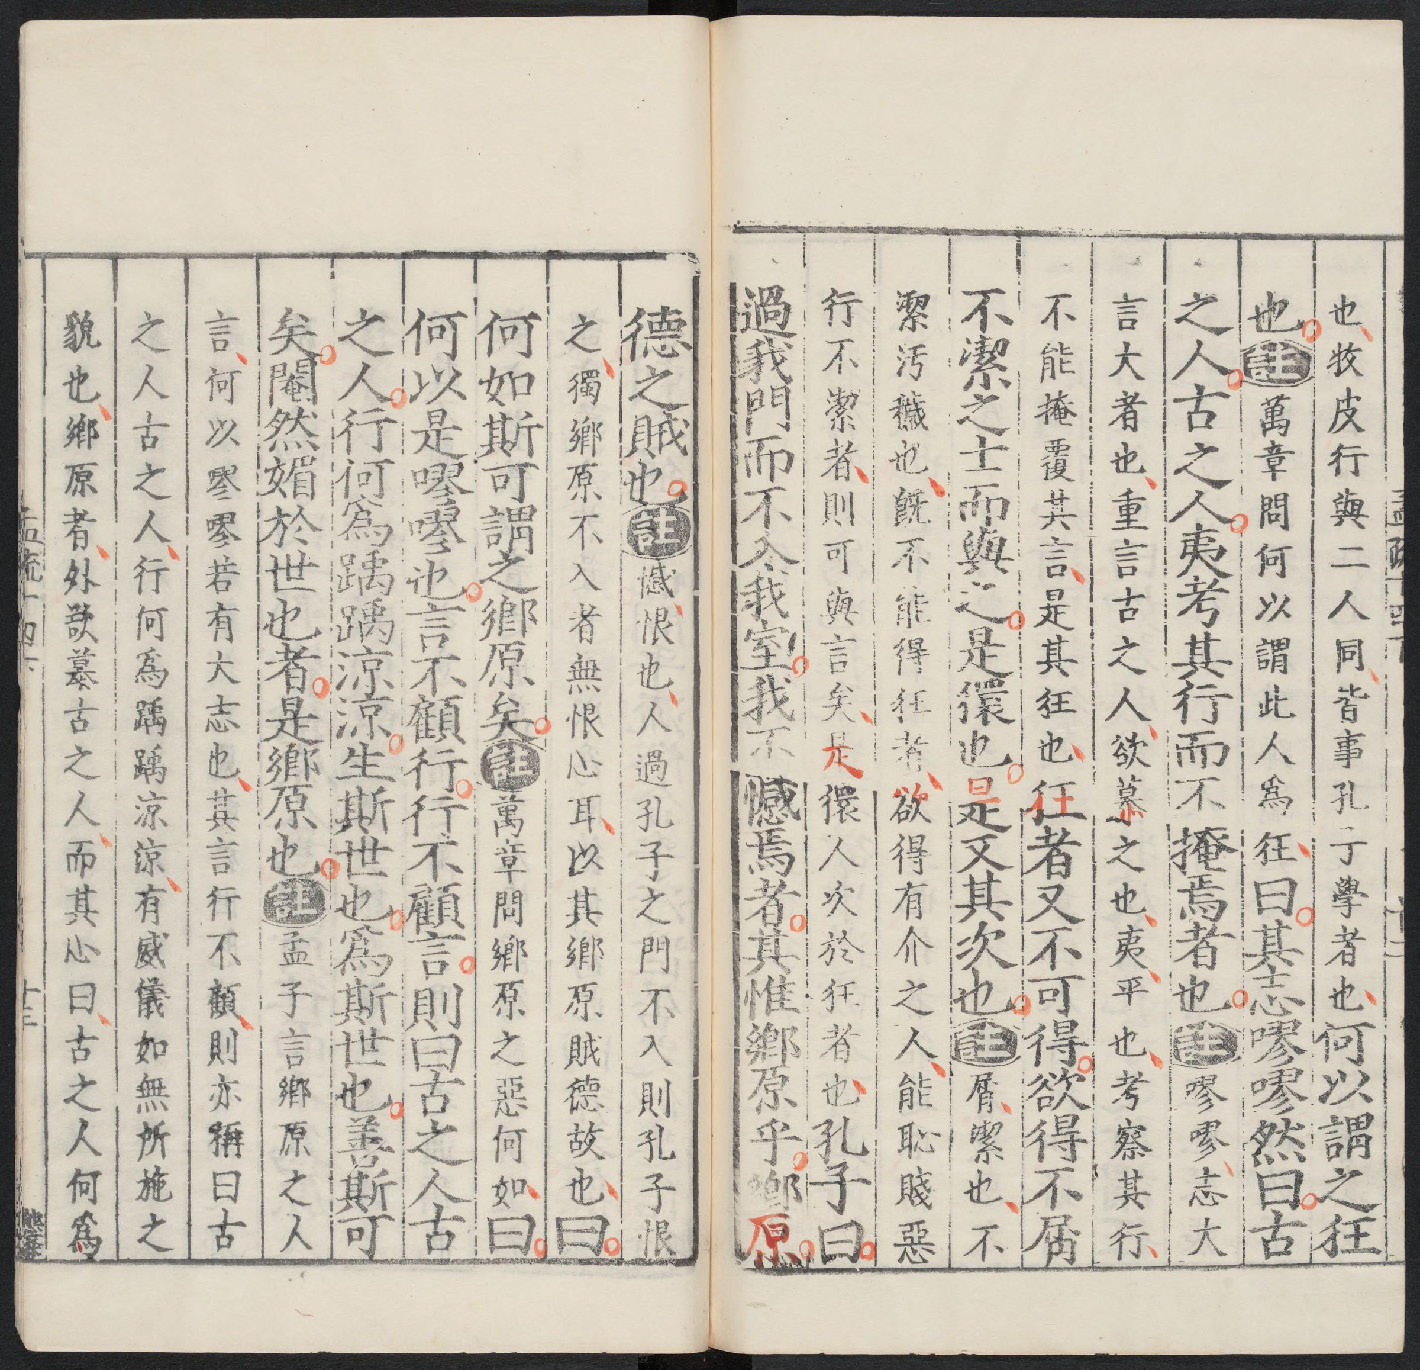 也牧皮行與二人同皆事孔子學者也何以謂之狂
也註萬章問何以謂此人爲狂曰其志嘐嘐然曰古
之人古之人夷考其行而不掩焉者也註嘐嘐志大
言大者也重言古之人欲慕之也夷平也考察其行
不能掩覆其言是其狂也狂者又不可得欲得不屑
不潔之士而與之是獧也是又其次也註屑潔也不
潔汚穢也旣不能得狂者欲得有介之人能恥賤惡
行不潔者則可與言矣是獧人次於狂者也孔子曰
過我門而不入我室我不憾焉者其惟鄉原乎鄉原
德之賊也註憾恨也人過孔子之門不入則孔子恨
之獨鄉原不入者無恨心耳以其鄉原賊德故也曰
何如斯可謂之鄉原矣註萬章問鄉原之惡何如曰
何以是嘐嘐也言不顧行行不顧言則曰古之人古
之人行何爲踽踽涼涼生斯世也爲斯世也善斯可
矣閹然媚於世也者是鄉原也註孟子言鄉原之人
言何以嘐嘐若有大志也其言行不顧則亦稱曰古
之人古之人行何爲踽踽涼涼有威儀如無所施之
貌也鄉原者外欲慕古之人而其心曰古之人何爲